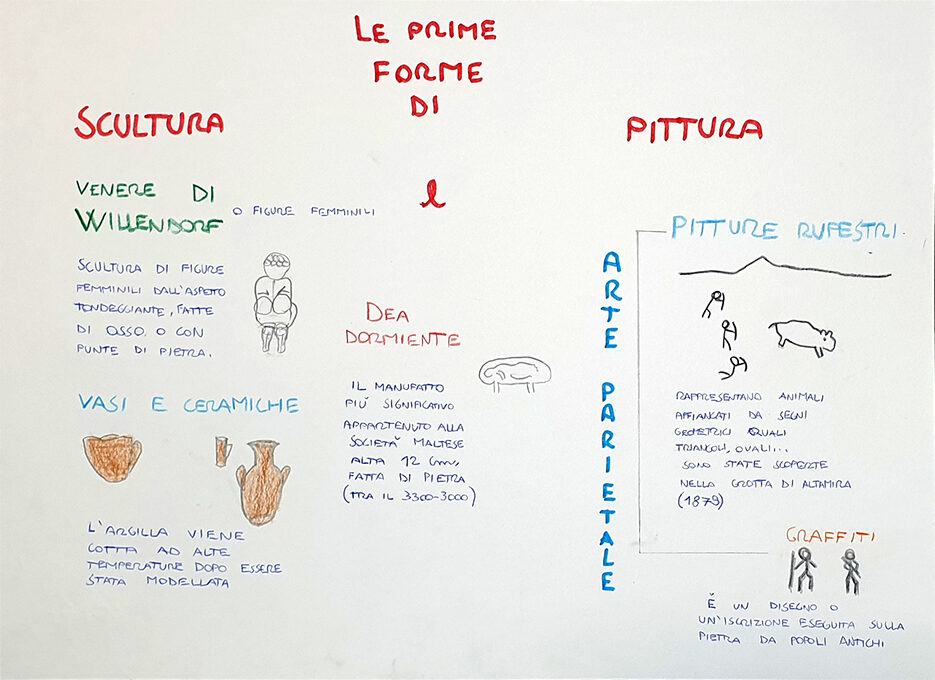 LE PRIME
FORME
DI
SCULTURA
e
PITTURA
VENERE DI
WILLENDORF
O FIGURE FEMMINILI
SCULTURA DI FIGURE
FEMMINILI DALL'ASPETO
TONDEGGIANTE, FATTE
DI OSSO O CON
PUNTE DI PIETRA.
VASI E CERAMICHE
L'ARGILLA VIENE
COTTA AD ALTE
TEMPERATURE DOPO ESSERE
STATA MODELLATA
DEA
DORMIENTE
IL MANUFATTO
PIÙ SIGNIFICATIVO
APPARTENUTO ALLA
SOCIETÀ MALTESE
ALTA 12 Cm,
FATTA DI PIETRA
(TRA IL 3300-3000)
ARTE PARIETALE
PITTURE RUPESTRI.
RAPPRESENTANO ANIMALI
AFFIANCATI DA SEGNI
GEOMETRICI QUALI
TRIANGOLI, OVALI...
SONO STATE SCOPERTE
NELLA GROTTA DI ALTAMIRA
(1879)
GRAFFITI
È UN DISEGNO O
UN'ISCRIZIONE ESEGUITA SULLA
PIETRA DA POPOLI ANTICHI